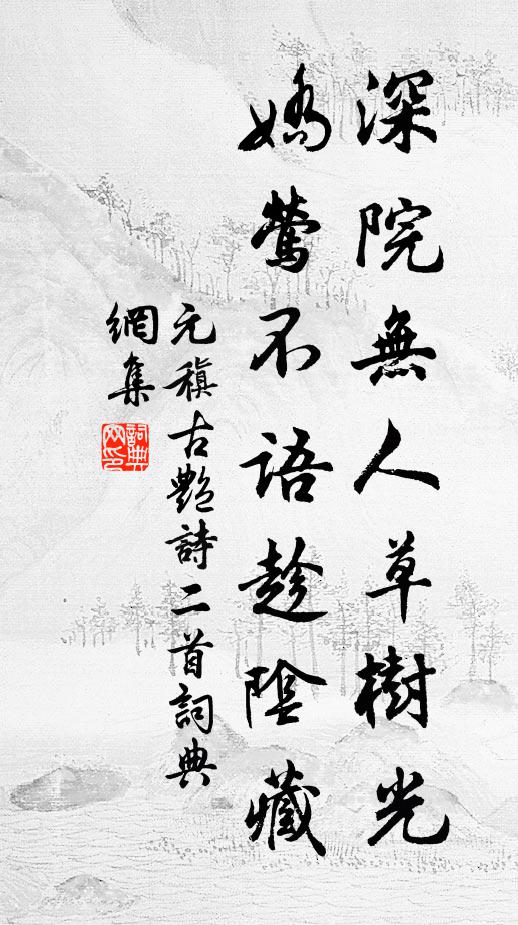 深院無人草樹光
嬌鶯不語趁陰藏
元稹古艷詩二首詞典
網集
詞典網印